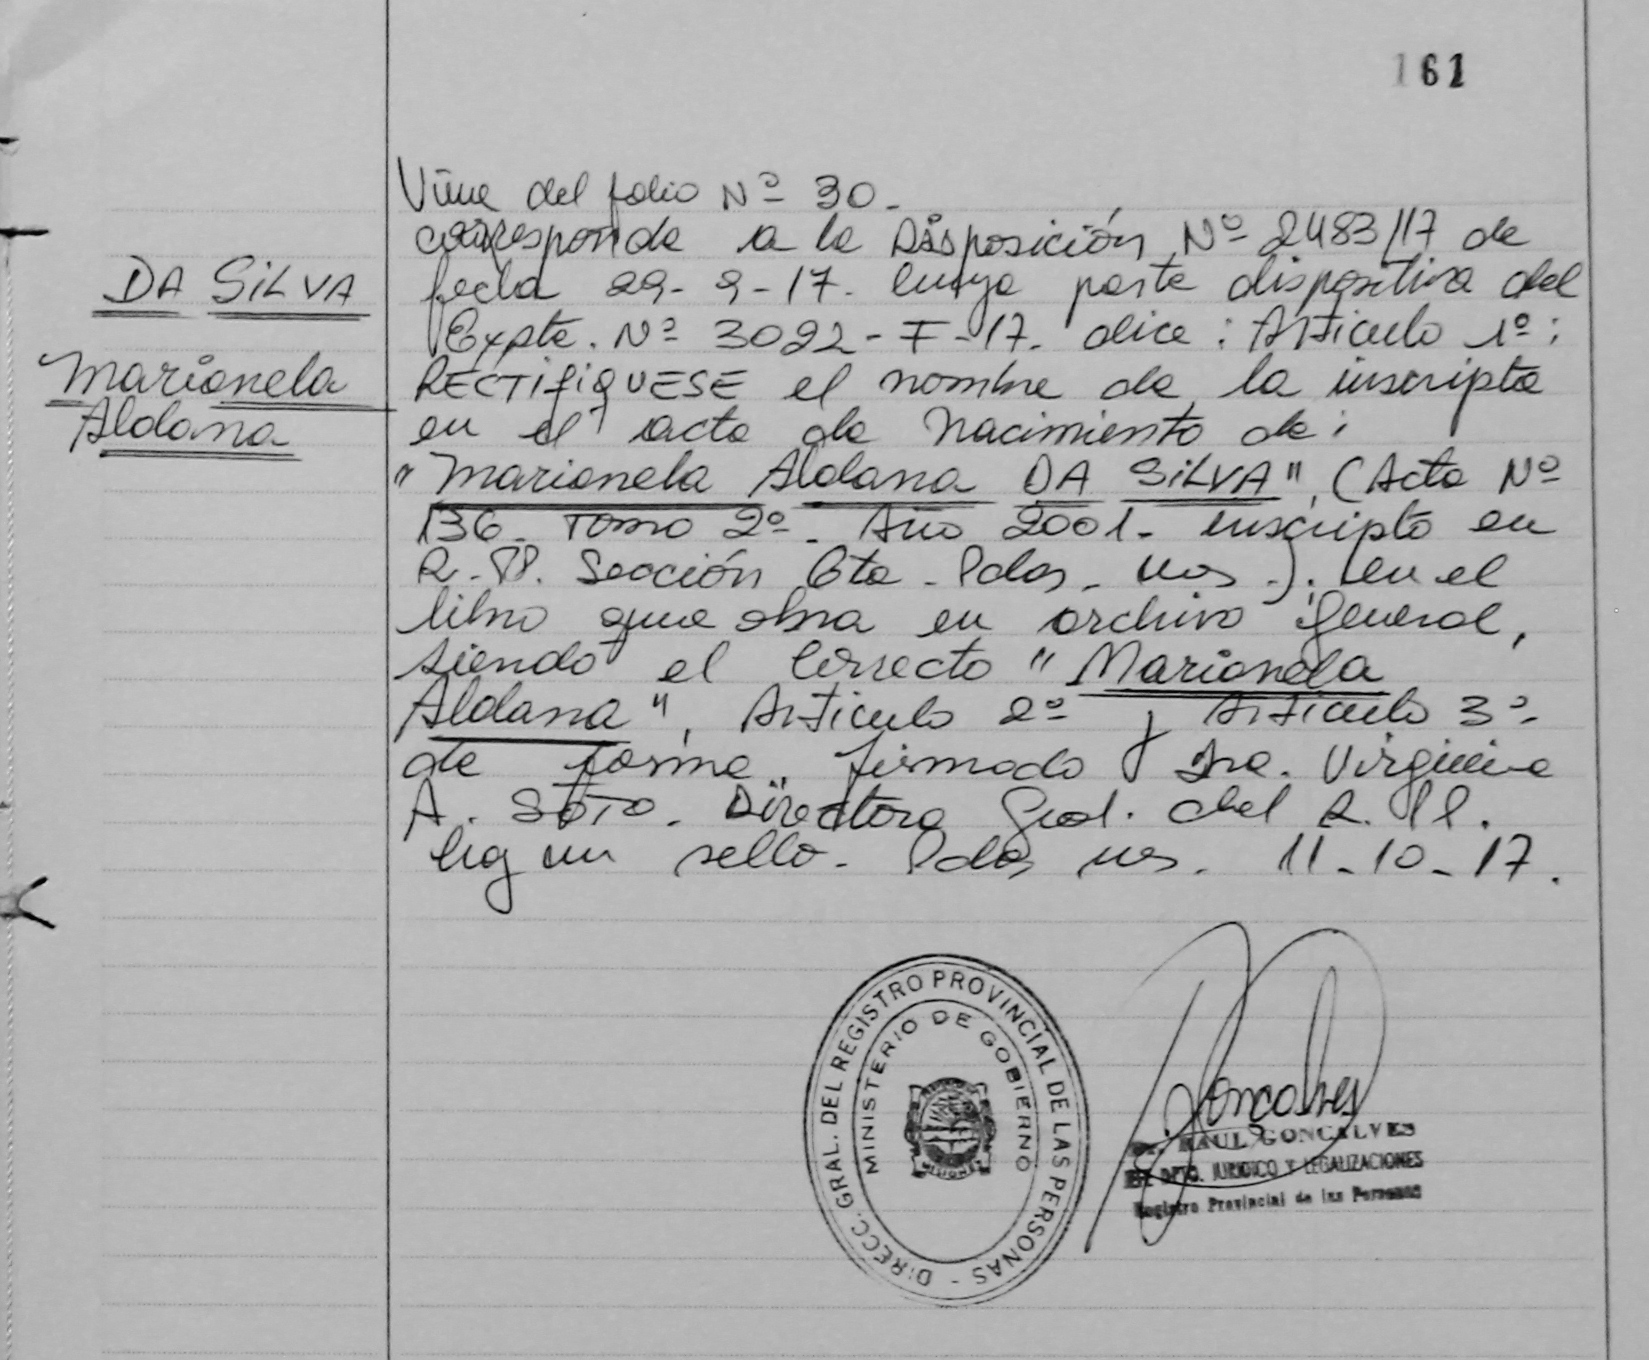 161
DA SiLVA
Marianela
Aldana
Viene del folio Nº 30.
corresponde a la Disposición Nº 2483/17 de
fecha 29-9-17. cuya parte dispositiva del
Expte. Nº 3092-F-17. dice: Articulo 1º:
RECTIFIQUESE el nombre de la inscripta
en el acta de Nacimiento de:
"Marionela Aldana DA SiLVA", (Acta Nº
136. Tomo 2º. Año 2001. inscripta en
R.PP. Sección 6ta. Pdas. Mnes.). en el
libro que obra en archivo general,
siendo el Correcto "Marianela
Aldana", Articulo 2º y Articulo 3º
de forma. firmado Dra. Virginia
A. SOTO. Directora Gral. del R.PP.
hay un sello. Pdas Mnes. 11-10-17.
DIRECC. GRAL. DEL REGISTRO PROVINCIAL DE LAS PERSONAS -
MINISTERIO DE GOBIERNO
MISIONES
Goncalves
Dr. RAUL GONCALVES
DPTO. JURIDICO Y LEGALIZACIONES
Registro Provincial de las Personas